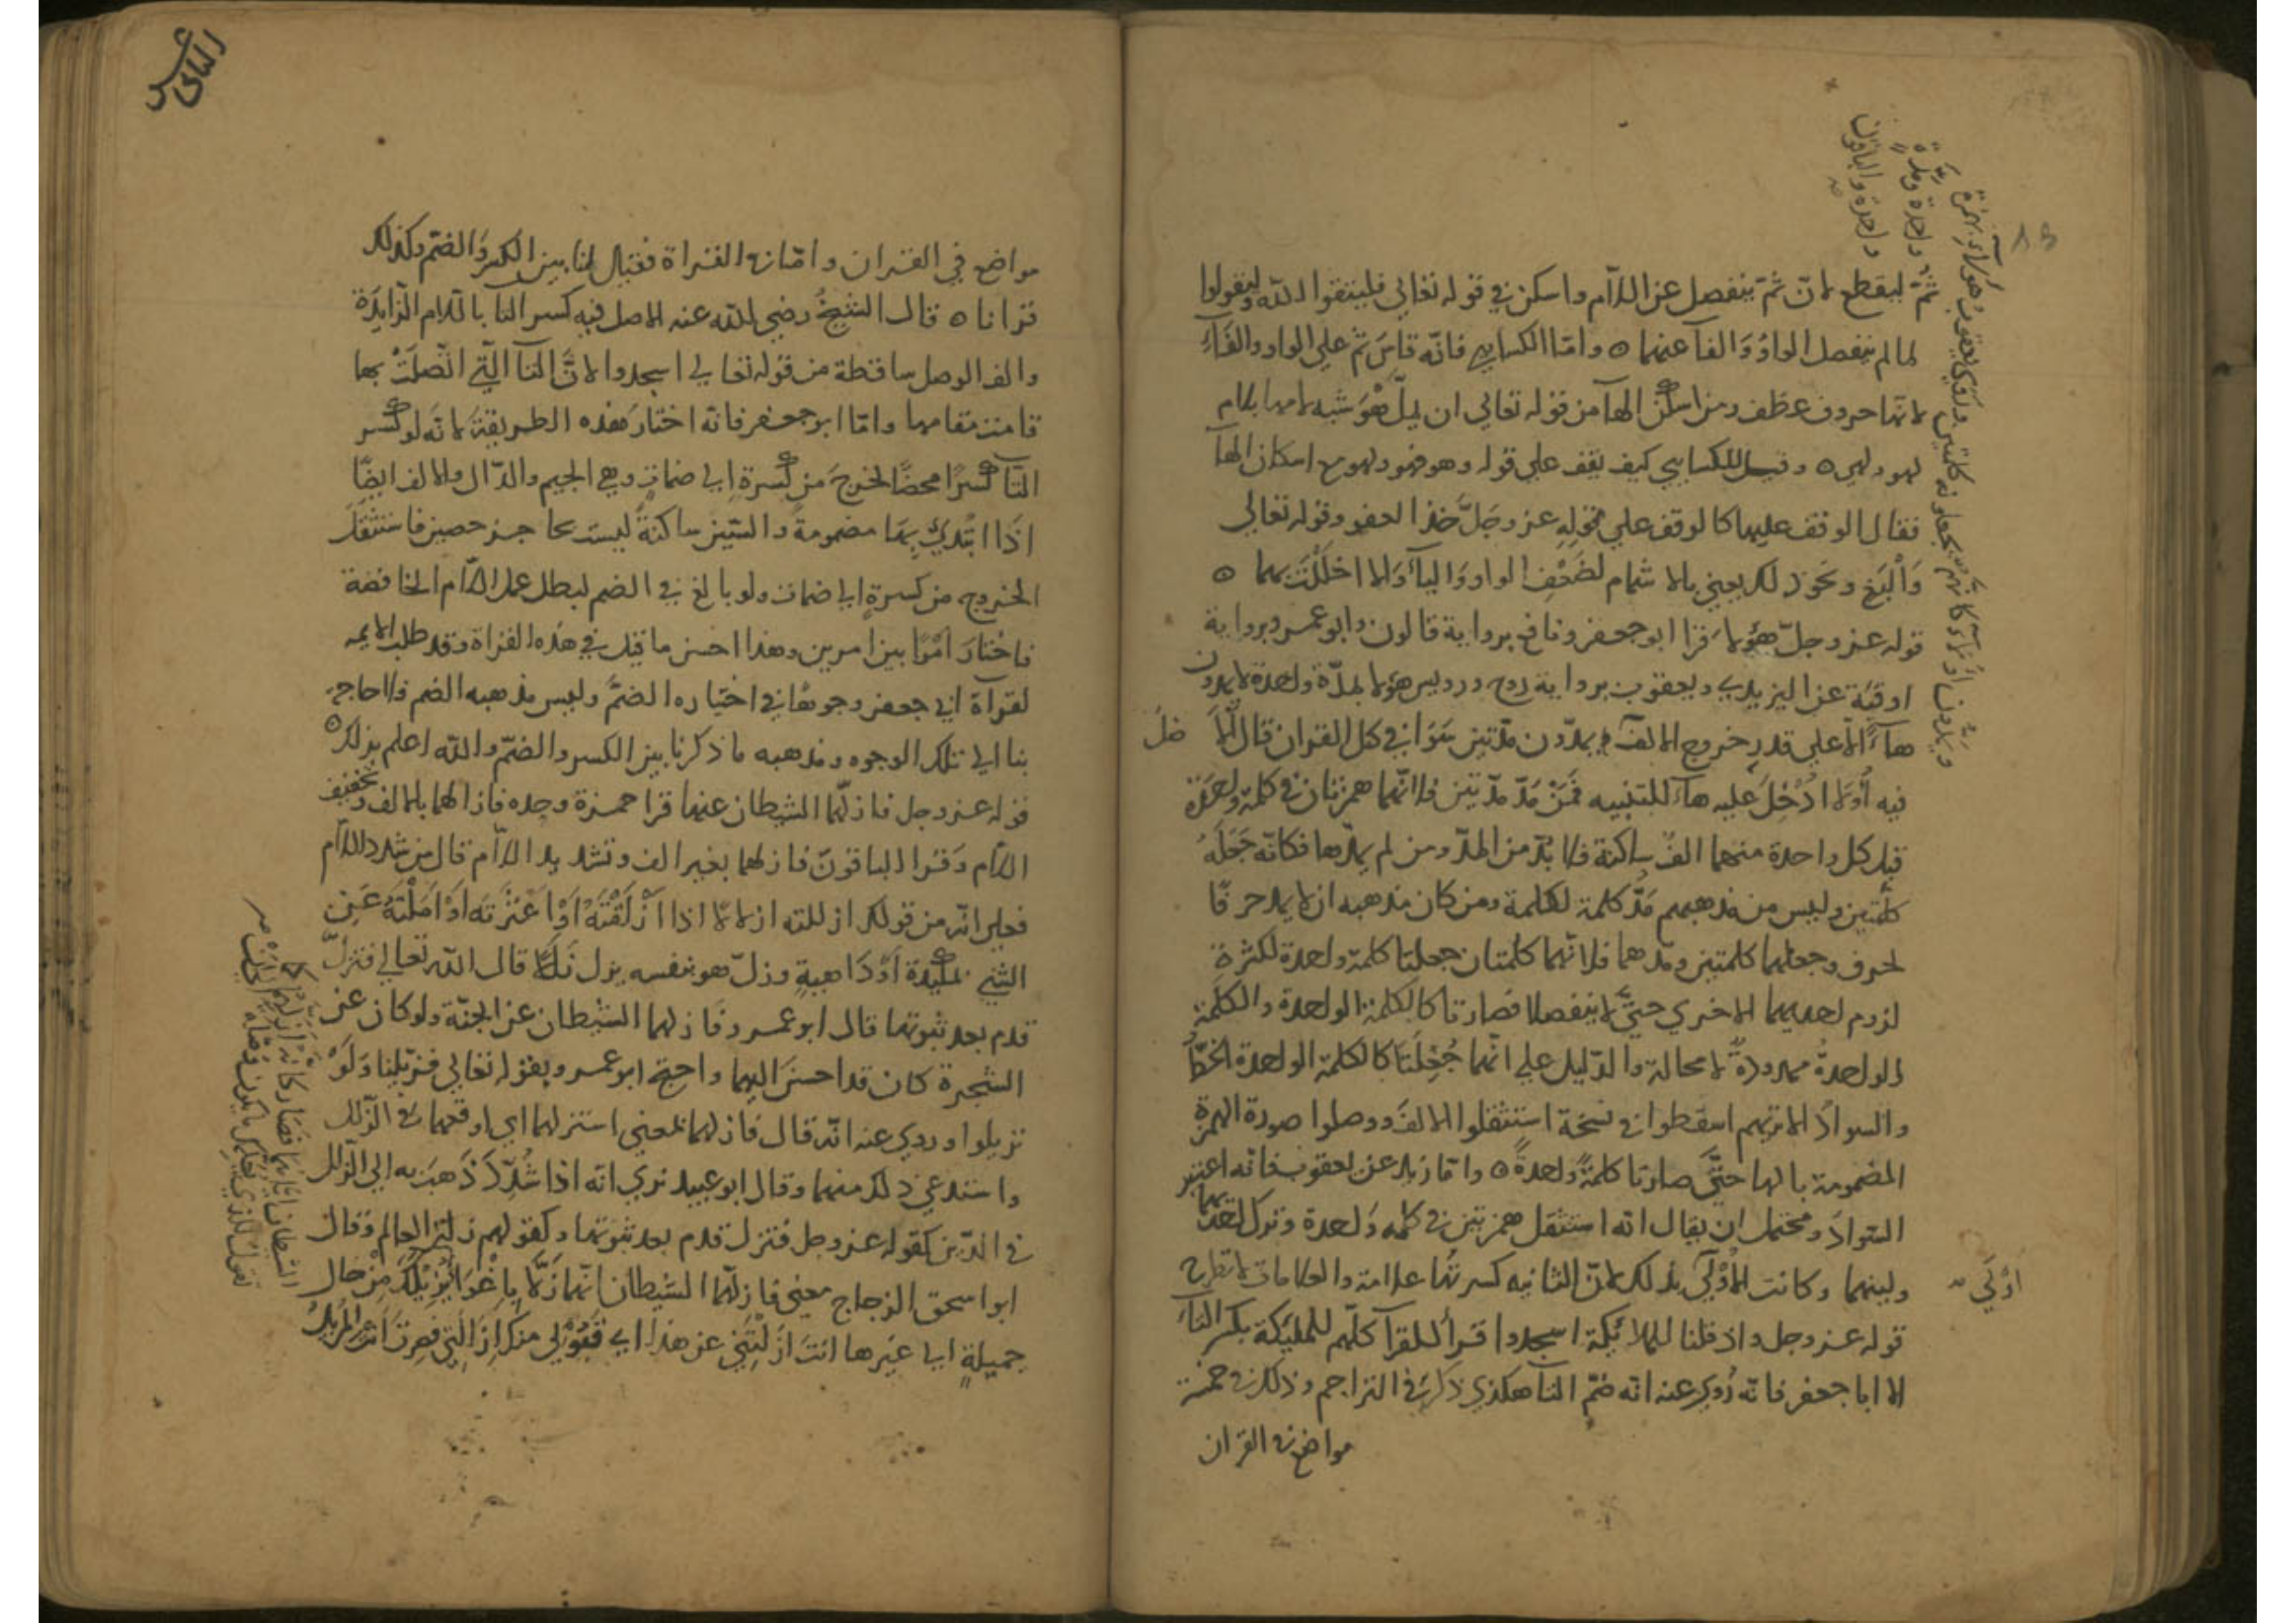 ثم ليقطع لان ثم ينفصل عن اللام واسكن في قوله تعالى فليتقوا الله وليقولوا
لما لم ينفصل الواو والفا عنهما ه واما الكسايي فانه قاس ثم على الواو والفاء
لانها حروف عطف ومن اسكن الهآ من قوله تعالى ان يمل هو شبه لامها بلام
لهو ولهي ه وقيل للكسايي كيف يقف على قوله وهو فهو ولهو مع اسكان الهآ
فقال الوقف عليها كالوقف على قوله عز وجل خذ العفو وقوله تعالى
والبغي ونحو ذلك يعني بالاشمام لضعف الواو واليآ والا اخللت بهما ه
قوله عز وجل هؤلا قرا ابو جعفر ونافع برواية قالون وابو عمرو برواية
اوقية عن اليزيدي ويعقوب برواية روح ورويس هؤلا بمدة واحدة لا يمدون
هآ الا على قدر خروج الالف يمدون مدتين سوا في كل القران قال
فيه أولا ادخل عليه هآ للتنبيه فمن مد مدتين فلانهما همزتان في كلمة واحدة
قبل كل واحدة منهما الف ساكنة فلا بد من المد ومن لم يمدها فكانه جعله
كلمتين وليس من مذهبهم مد كلمة لكلمة ومن كان مذهبه ان لا يمد حرفا
لحرف وجعلهما كلمتين ومدهما فلانهما كلمتان جعلتا كلمة واحدة لكثرة
لزوم احديهما الاخرى حتى لا ينفصلا فصارتا كالكلمة الواحدة والكلمة
الواحدة ممدودة لا محالة والدليل على انهما جعلتا كالكلمة الواحدة الخط
والسواد الا تريهم اسقطوا في نسخة استثقلوا الالف ووصلوا صورة الهمزة
المضمومة بالها حتى صارتا كلمة واحدة ه واما زيد عن يعقوب فانه اعتبر
السواد ومحتمل ان يقال انه استثقل همزتين في كلمه واحدة وترك احديهما
ولينهما وكانت الاولى بذلك لان الثانيه كسرتها علامة والعلامات لا تطرح
قوله عز وجل واذ قلنا للملائكة اسجدوا قرأ القرآ كلهم للمليكة بكسر التآ
الا ابا جعفر فانه روي عنه انه ضم التآ هكذي ذكر في التراجم وذلك في خمسة
مواضع في القران
اولى
مواضع في القران واما في القراة فقيل لنا بين الكسر والضم وكذلك
قرانا ه قال الشيخ رضي الله عنه الاصل فيه كسر التا باللام الزايدة
والف الوصل ساقطة من قوله تعالى اسجدوا لان التآ التي اتصلت بها
قامت مقامها واما ابو جعفر فانه اختار هذه الطريقة لانه لو كسر
التآ كسرا محضا لخرج من كسرة الى ضمات وهي الجيم والدال والالف ايضا
اذا ابتدئ بها مضمومة والسين ساكنة ليست بحاجز حصين فاستثقل
الخروج من كسرة الى ضمات ولو بالغ في الضم لبطل عمل اللام الخافضة
فاختار امرا بين امرين وهذا احسن ما قيل في هذه القراة وقد طلب الايمه
لقرآة ابي جعفر وجوها في اختياره الضم وليس مذهبه الضم فلا حاجة
بنا الى تلك الوجوه ومذهبه ما ذكرنا بين الكسر والضم والله اعلم بذلك ه
قوله عز وجل فازلهما الشيطان عنها قرا حمزة وحده فازالهما بالالف وتخفيف
اللام وقرا الباقون فازلهما بغير الف وتشديد اللام قال من شدد اللام
فعلى انه من قولك ازللته ازلالا اذا ازلقته او اعثرته او املته عن
الشي بمكيدة او داهية وزل هو بنفسه يزل زللا قال الله تعالى فتزل
قدم بعد ثبوتها قال ابو عمرو فازلهما الشيطان عن الجنة ولو كان عن
الشجرة كان قد احسن اليهما واحتج ابو عمرو بقوله تعالى فزيلنا ولو
تزيلوا وروي عنه انه قال فازلهما بمعنى استزلهما اي اوقعهما في الزلل
واستدعى ذلك منهما وقال ابو عبيد نرى انه اذا شدد ذهب به الى الزلل
في الدين كقوله عز وجل فتزل قدم بعد ثبوتها وكقولهم زلة العالم وقال
ابو اسحق الزجاج معنى فازلهما الشيطان انهما زلا باغوا
جميلة الى غيرها انت ازللتني عن هذا اي قبولي منك